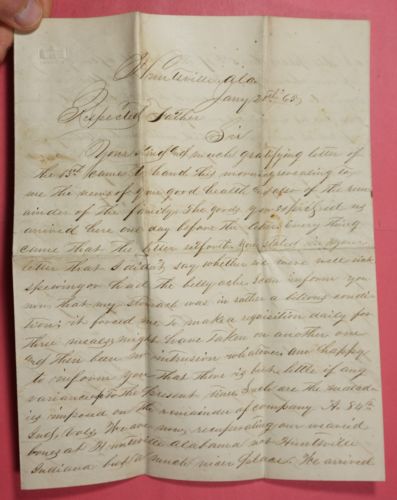 Huntsville Ala
Jany 20th 65
Respected Father
Sir
Your kind & much gratifying letter of
the 13th came to hand this morning revealing to
me the news of your good health & also of the rem
ainder of the family. The goods you expressed us
arrived here one day before the letter. Every thing
came that the letter. You stated in your
letter that I didn't say whether we were well sick
speewing or had the bellyache I can inform you
now that my stomach was in rather a bilious condi
tion; it forced me to make a requisition daily for
three meals might have taken on another one
& then been no intrusion whatever. Am happy
to inform you that there is but little if any
variance up to the present time. Such are the malad
ies imposed on the remainder of company A. 84th
Ind, Vols. We are now recuperating our wearied
bones at Huntsville Alabama not Huntsville
Indiana but a much nicer place. We arrived